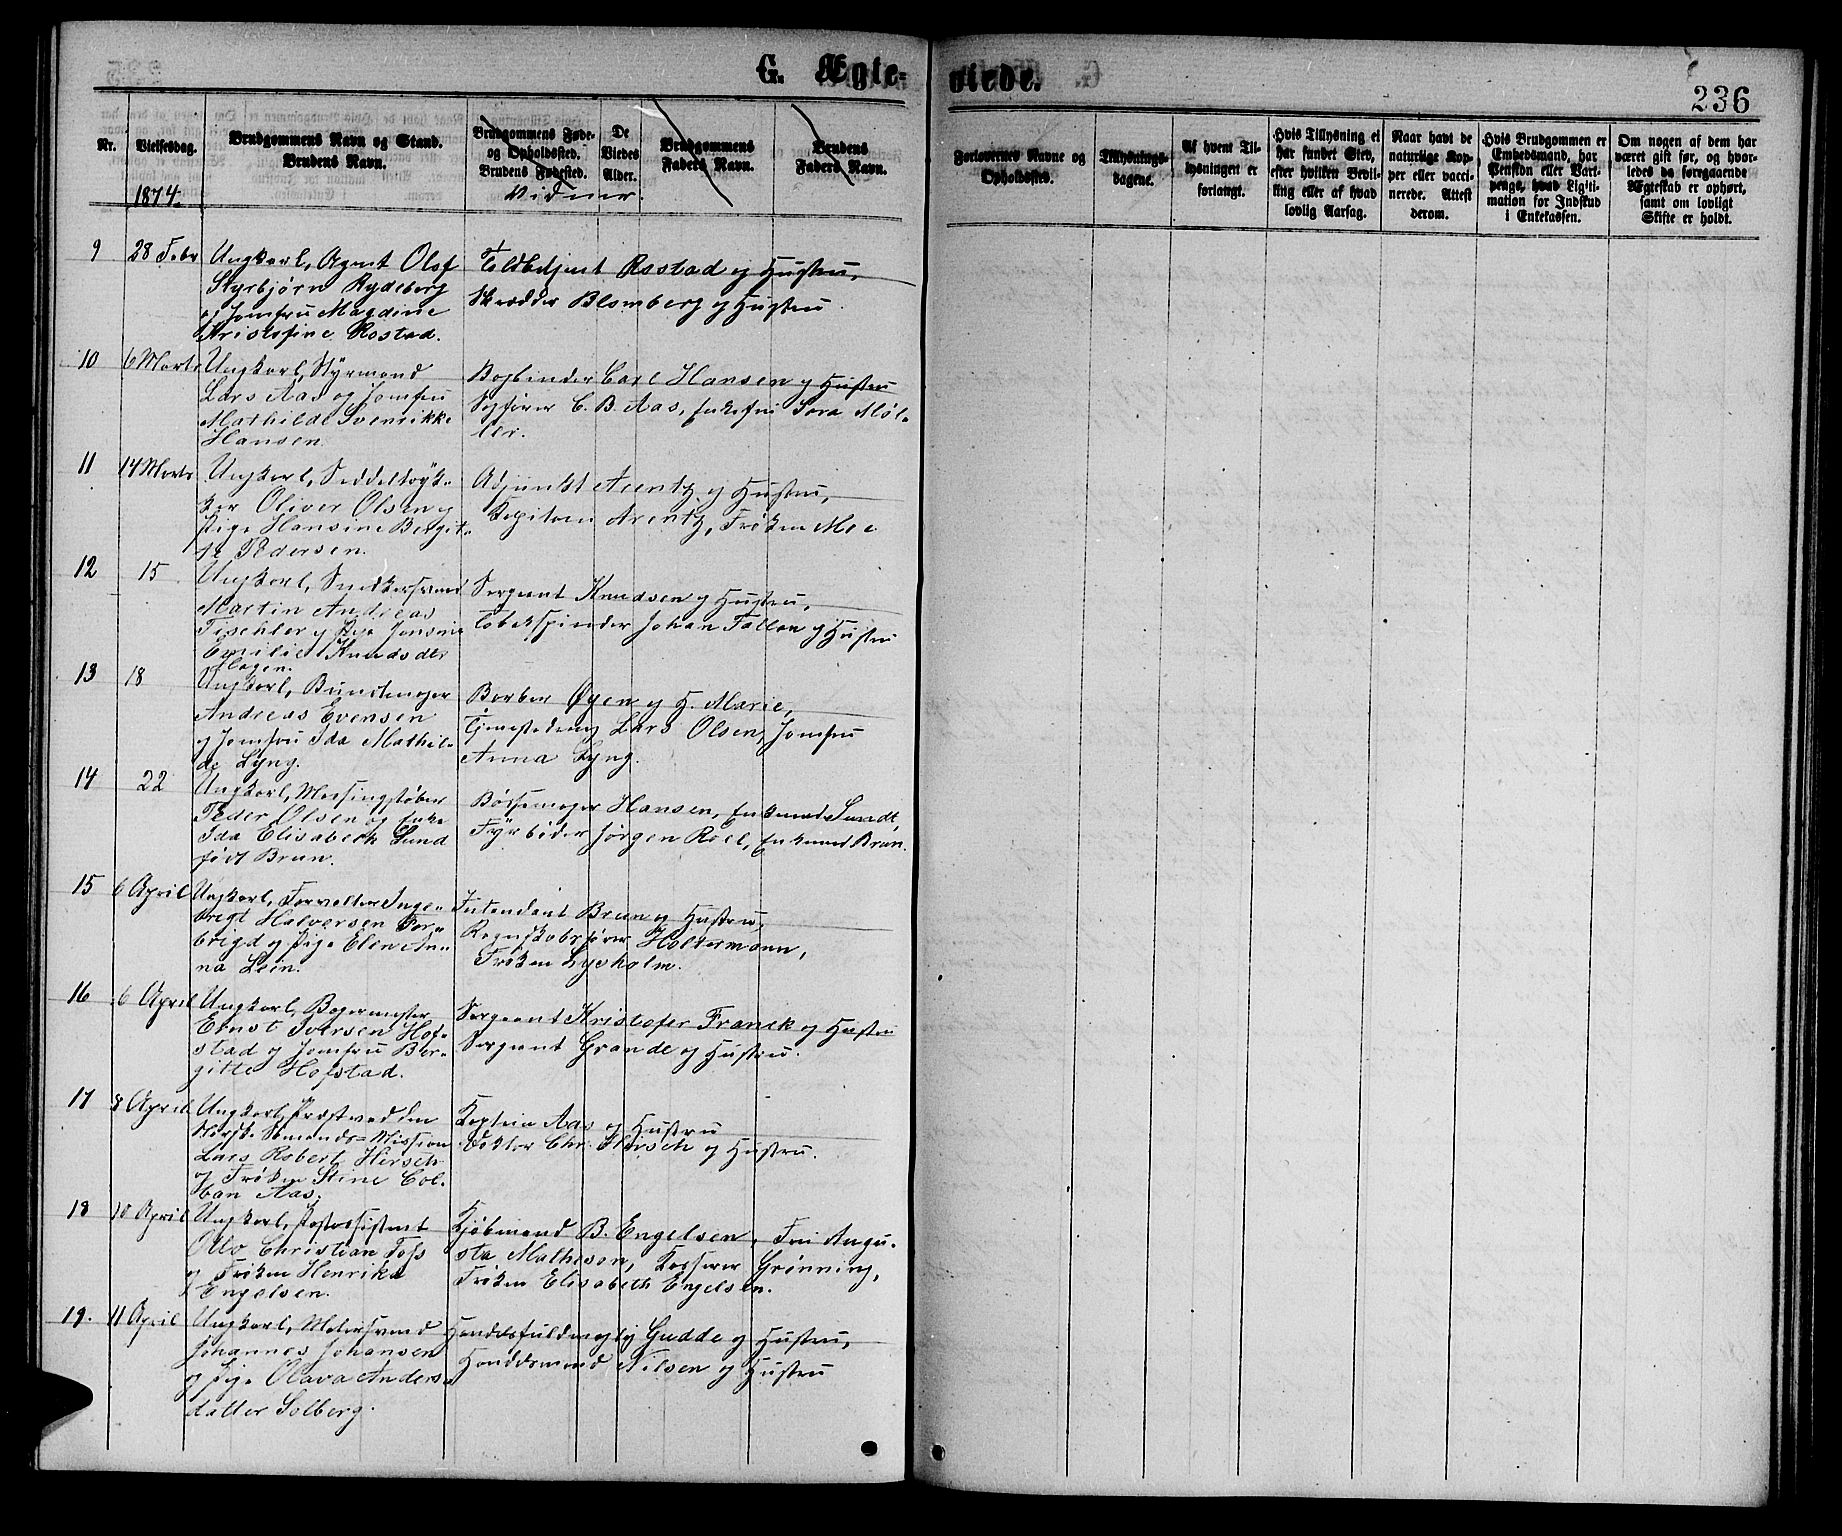 G. Ægte-
viede.
236
Nr.
Vielsesdag.
Brudgommens Navn og Stand.
Brudens Navn.
Brudgommens Føde-
og Opholdssted.
Brudens Fødested.
De
Viedes
Alder.
Brudgommens
Faders Navn.
Brudens
Faders Navn.
Forlovernes Navne og
Opholdssted.
Tillysnings-
dagene.
Af hvem Til-
lysningen er
forlangt.
Hvis Tillysning ei
har fundet Sted,
efter hvilken Bevil-
ling eller af hvad
lovlig Aarsag.
Naar havt de
naturlige Kop-
per eller vacci-
nerede. Attest
derom.
Hvis Brudgommen er
Embedsmand, har
Pension eller Vart-
penge, hvad Ligiti-
mation for Indskud
i Enkekassen.
Om nogen af dem har
været gift før, og hvor-
ledes da foregaaende
Ægteskab er ophørt,
samt om lovligt
Skifte er holdt.
1874.
Vidner.
9
28 Febr
Ungkarl, Agent Olof
Styrbjørn Rydeberg
og Jomfru Magdine
Kristofine Rostad.
Toldbetjent Rostad og Hustru,
Skrædder Blomberg og Hustru
10
6 Marts
Ungkarl, Styrmand
Lars Aas og Jomfru
Mathilde Svenrikke
Hansen
Bogbinder Carl Hansen og Hustru
Sagfører C. B. Aas, Enkefru Sara Møl-
ler.
11
14 Marts
Ungkarl, Seddeltryk-
ker Oliver Olsen og
Pige Hansine Bergit-
te Pedersen.
Adjunkt Arentz og Hustru,
Kapitain Arentz, Frøken Moe
12
15
Ungkarl, Snedkersvend
Martin Andreas
Tischler og Pige Jonsine
Emilie Knudsdtr
Hagen.
Sergeant Knudsen og Hustru,
Tobakspinder Johan Fallan og Hustru
13
18
Ungkarl, Buntmager
Andreas Evensen
og Jomfru Ida Mathil-
de Lyng.
Barber Øyen og H. Marie,
Tjenestedreng Lars Olsen, Jomfru
Anna Lyng.
14
22
Ungkarl, Messingstøber
Peder Olsen og Enke
Ida Elisabeth Lund
født Brun.
Bøssemager Hansen, Enkemad Lundt,
Fyrbøder Jørgen Roel, Enkemad Brun.
15
6 April
Ungkarl, Forvalter Inge-
brigt Halversen For-
brigd og Pige Elen An-
na Lein.
Intendant Brun og Hustru,
Regnskabsfører Holtermann,
Frøken Lysholm.
16
6 April
Ungkarl, Bagermester
Ernst Iversen Hof-
stad og Jomfru Ber-
gitte Hofstad.
Sergeant Kristofer Franck og Hustru
Sergeant Grande og Hustru.
17
8 April
Ungkarl, Præst ved den
Norske Sømands-Mission
Lars Robert Hirsch
og Frøken Stine Col-
ban Aas.
Kaptein Aas og Hustru
Doktor Chr. Hirsch og Hustru.
18
10 April
Ungkarl, Postassistent
Otto Christian Foss
og Frøken Henrika
Engelsen.
Kjøbmand B. Engelsen, Fru Augu-
sta Matheson, Kasserer Grønning,
Frøken Elisabeth Engelsen.
19.
11 April
Ungkarl, Malersvend
Johannes Johansen
og Pige Olava Anders-
datter Solberg.
Handelsfuldmægtig Gudde og Hustru,
Handelsmand Nilsen og Hustru